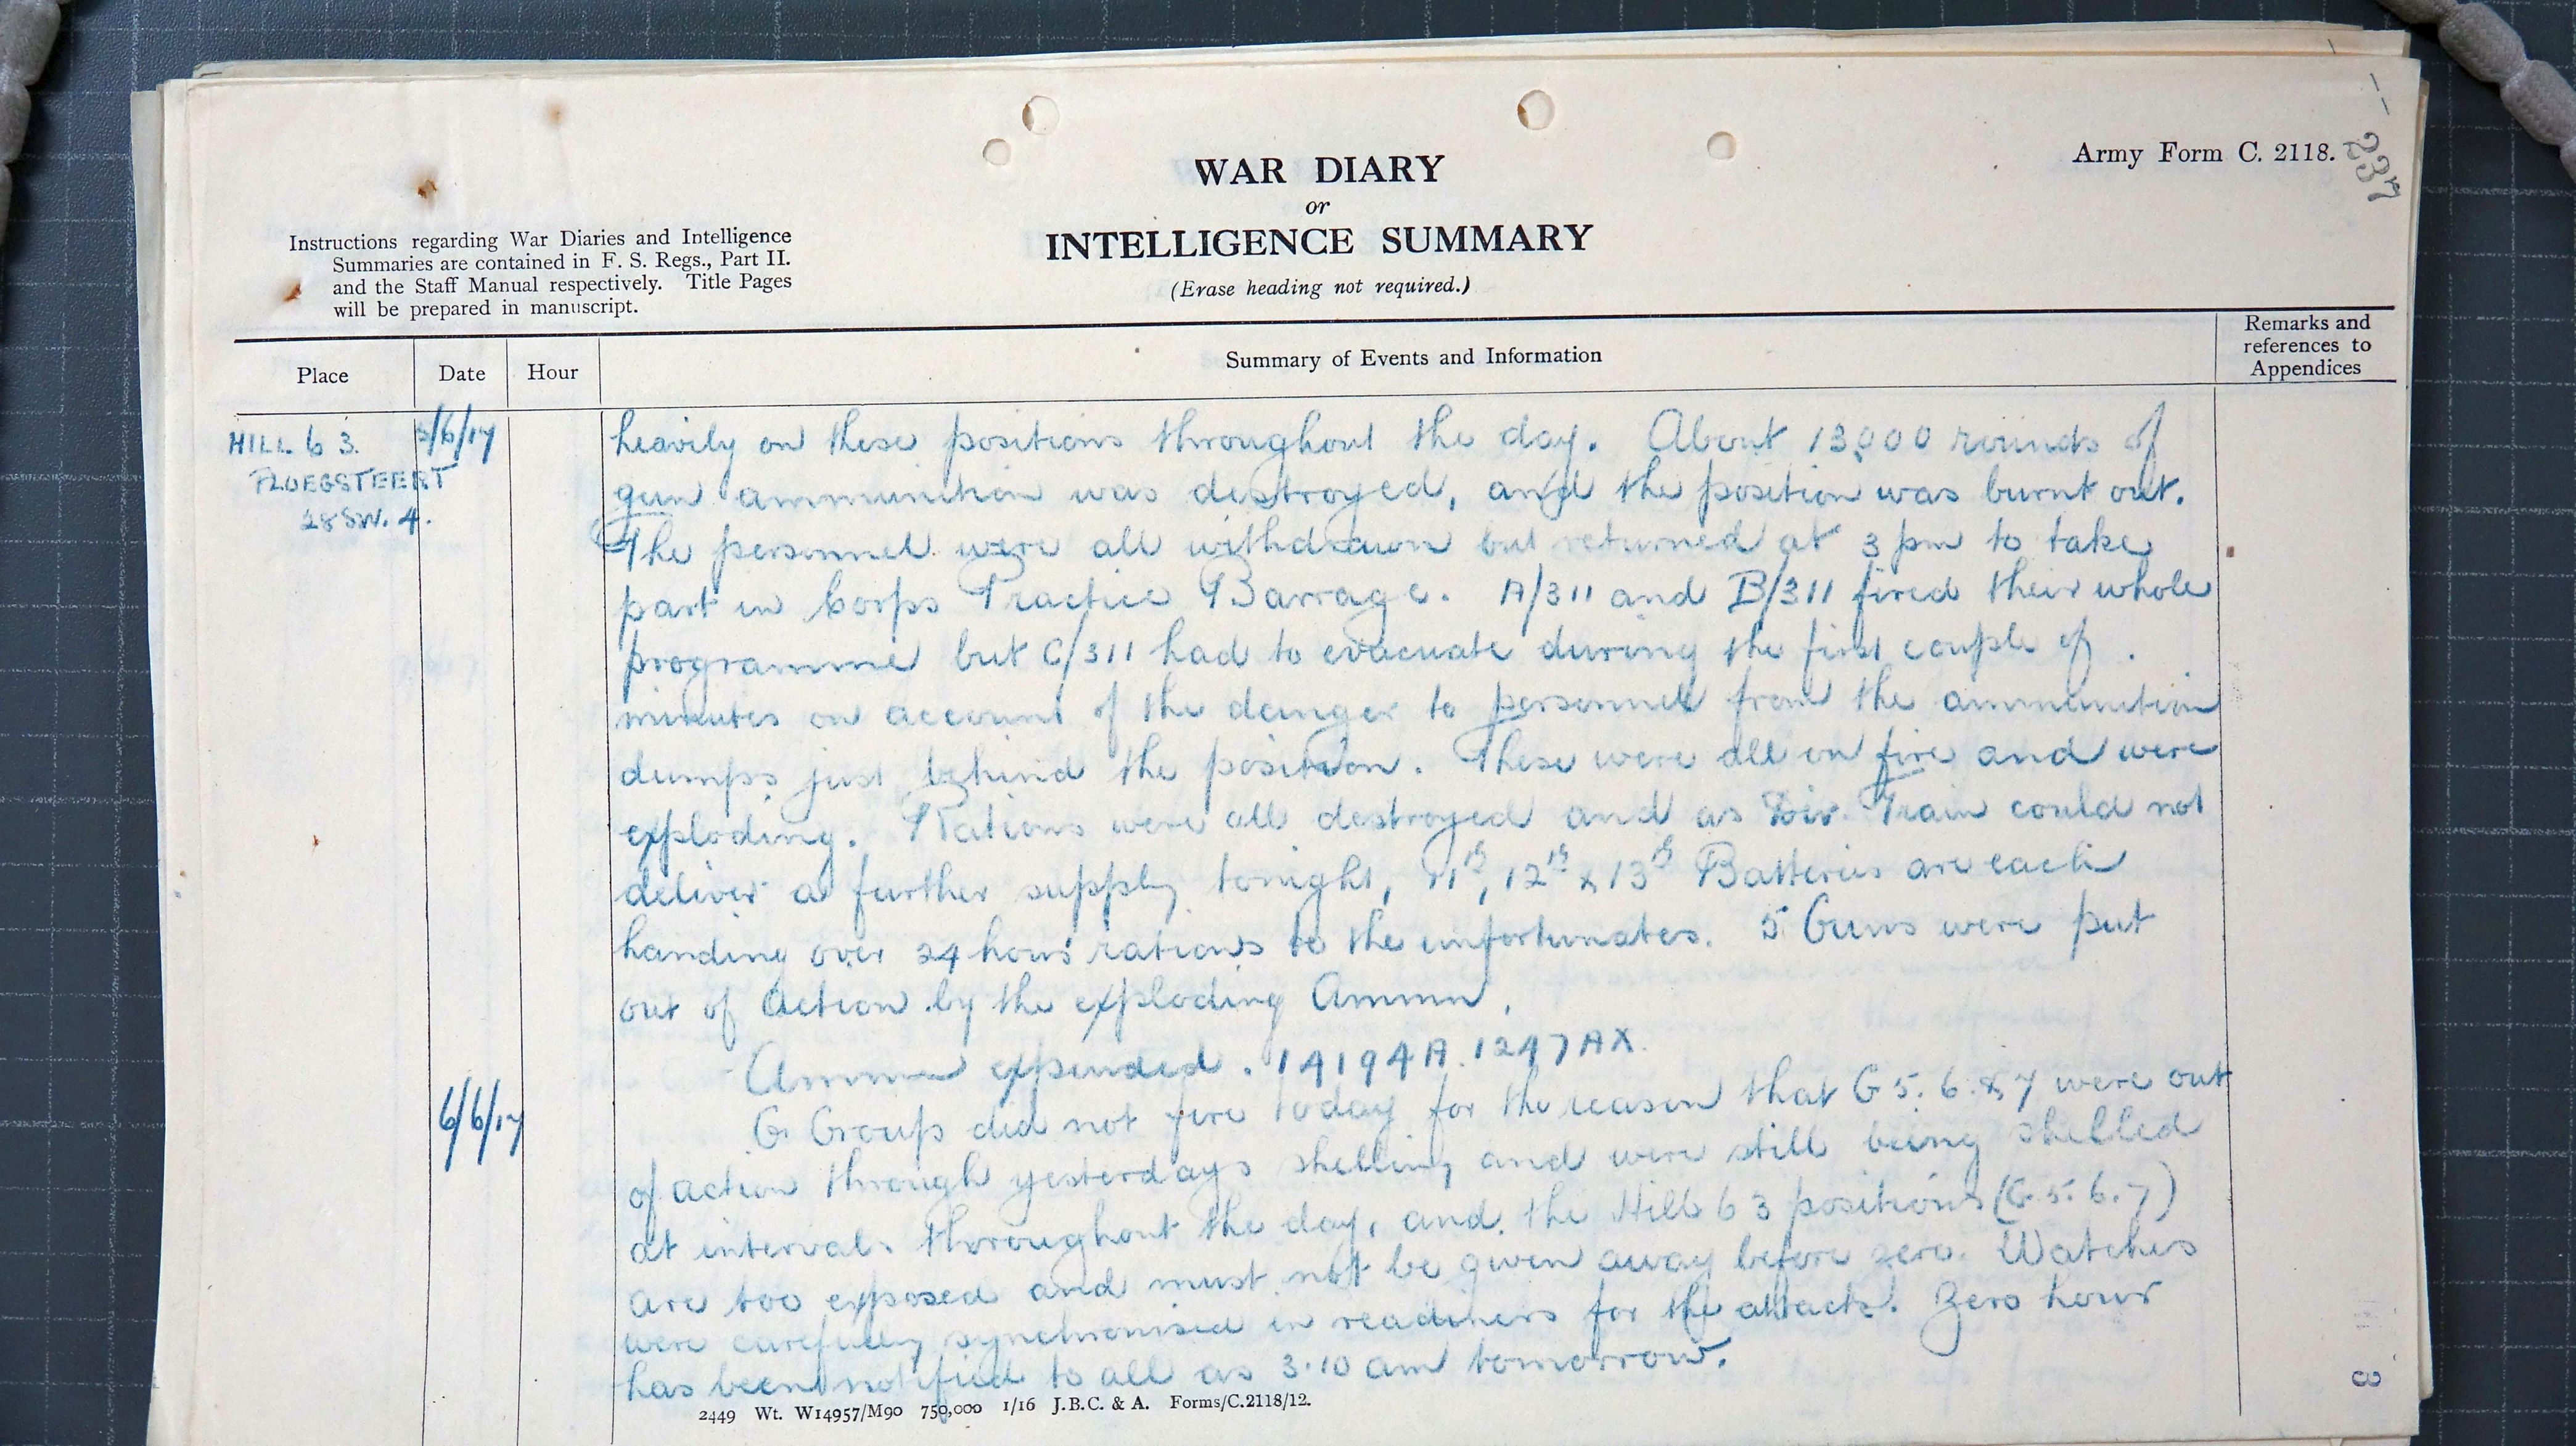 Army Form C. 2118.
237
WAR DIARY
or
INTELLIGENCE SUMMARY
(Erase heading not required.)
Instructions regarding War Diaries and Intelligence
Summaries are contained in F. S. Regs., Part II.
and the Staff Manual respectively. Title Pages
will be prepared in manuscript.
Place Date Hour Summary of Events and Information Remarks and references to Appendices
HILL 63.
PLOEGSTEERT
28SW. 4.
5/6/17
heavily on these positions throughout the day. About 13000 rounds of
gun ammunition was destroyed, and the position was burnt out.
The personnel were all withdrawn but returned at 3 pm to take
part in Corps Practice Barrage. A/311 and B/311 fired their whole
programme but C/311 had to evacuate during the first couple of
minutes on account of the danger to personnel from the ammunition
dumps just behind the position. These were all on fire and were
exploding. Rations were all destroyed and as Div. Train could not
deliver a further supply tonight, 11th, 12th & 13th Batteries are each
handing over 24 hours' rations to the unfortunates. 5 Guns were put
out of action by the exploding Ammn.
Ammn expended. 14194A. 1247AX.
6/6/17
G Group did not fire today for the reason that G 5. 6. & 7 were out
of action through yesterdays shelling and were still being shelled
at intervals thoroughout the day, and the Hill 63 positions (G. 5. 6. 7)
are too exposed and must not be given away before zero. Watches
were carefully synchronised in readiness for the attack. Zero hour
has been notified to all as 3.10 am tomorrow.
2449 Wt. W14957/M90 750,000 1/16 J.B.C. & A. Forms/C.2118/12.